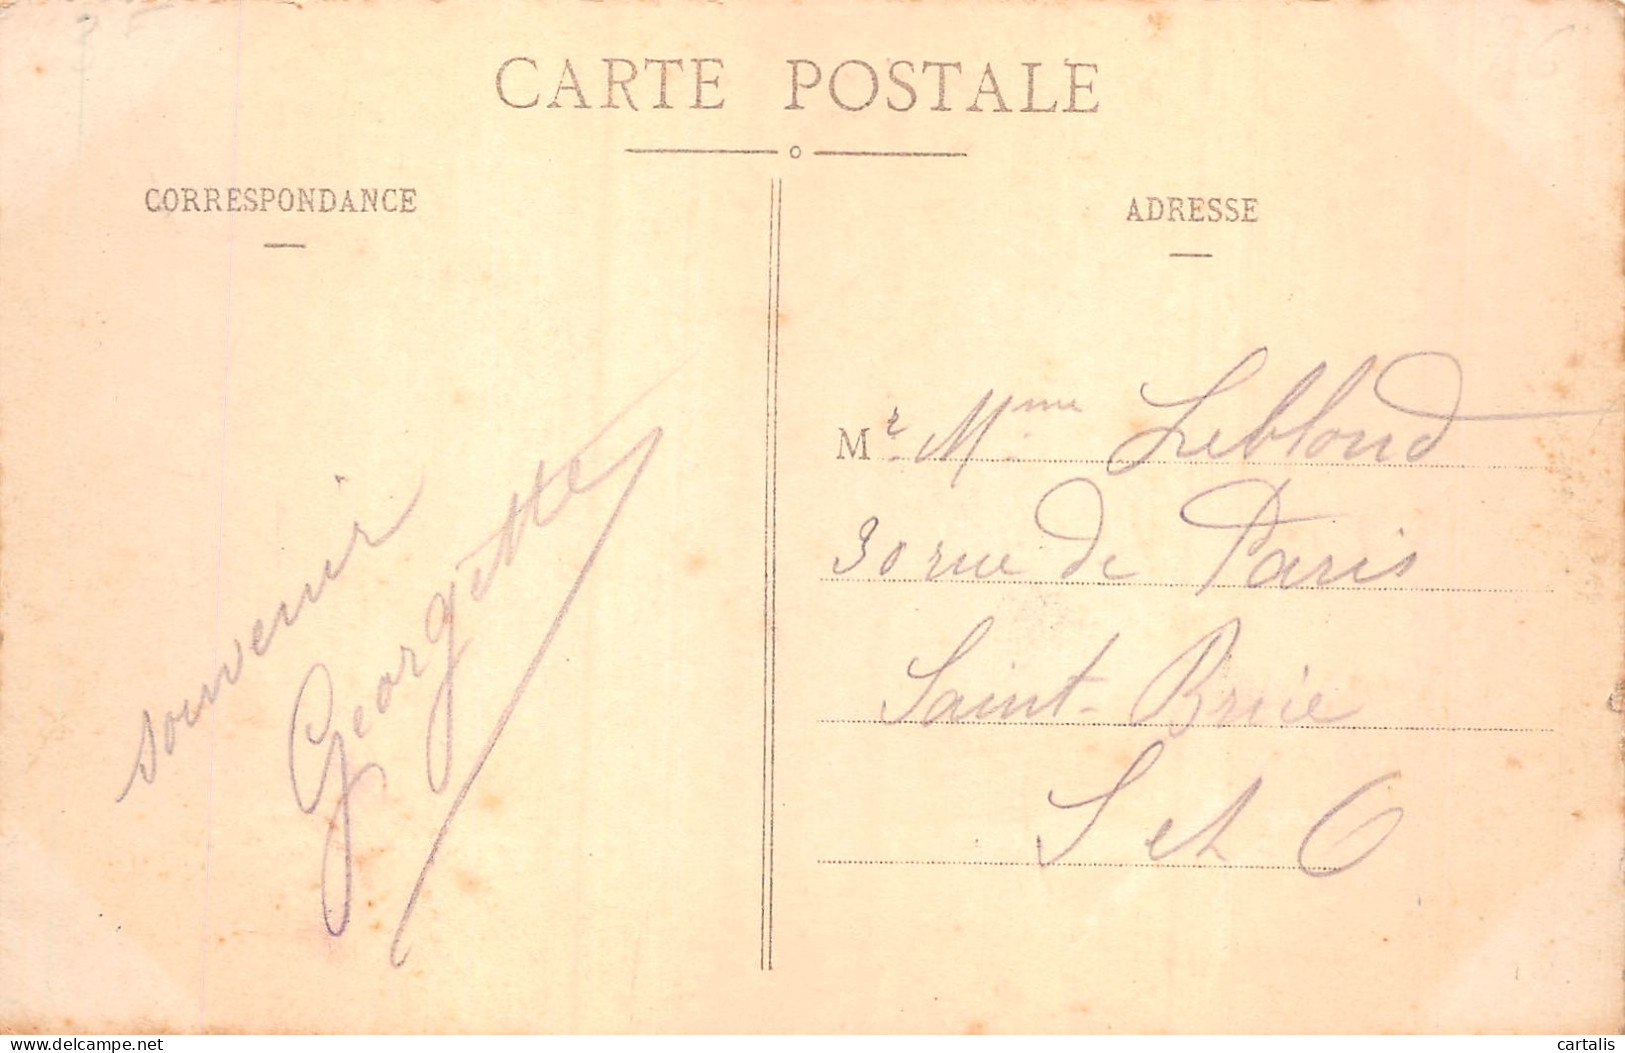 CARTE POSTALE
CORRESPONDANCE
souvenir
Georgette
ADRESSE
Mr. Mme Leblond
30 rue de Paris
Saint-Brice
S et O
cartalis
delcampe.net